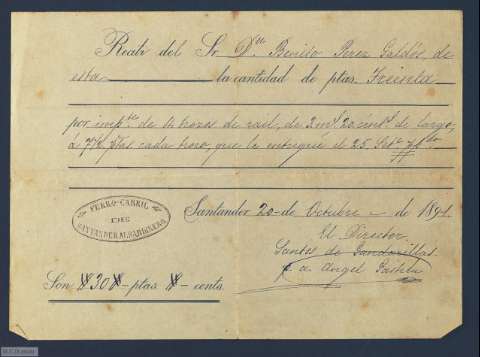 Recibí del Sr. Dn. Benito Perez Galdós, de
esta la cantidad de ptas. Treinta
por impte. de 4 trozos de rail, de 2 mts. 20 cents. de largo,
á 7½ ptas cada trozo, que le entregué el 25 Set.
Santander 20 de Octubre de 189
El Director
Santos de Gandarillas
p. a. Angel
FERRO-CARRIL
DE
SANTANDER AL SARDINERO
Son #30#- ptas. #- cents.